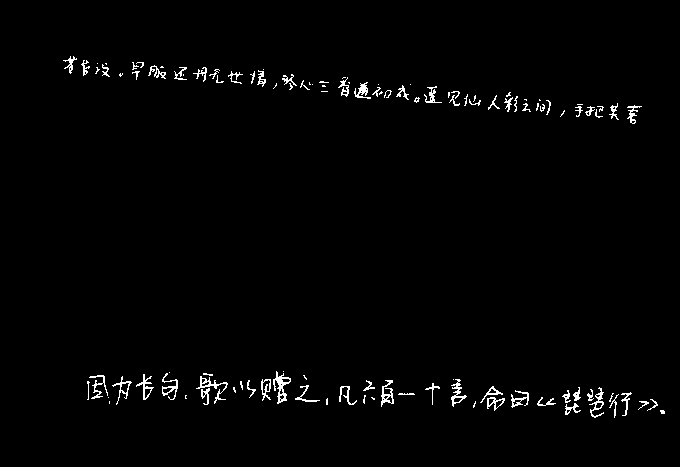 苔没。早服还丹无世情,琴心三叠道初成。遥见仙人彩云间,手把芙蓉
因为长句,歌以赠之,凡六百一十言,命曰《琵琶行》。